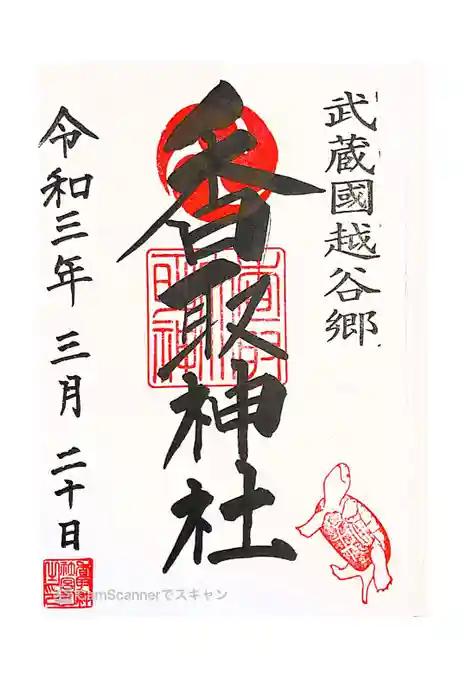 武蔵國越谷郷
香取神社
令和三年三月二十日
CamScannerでスキャン